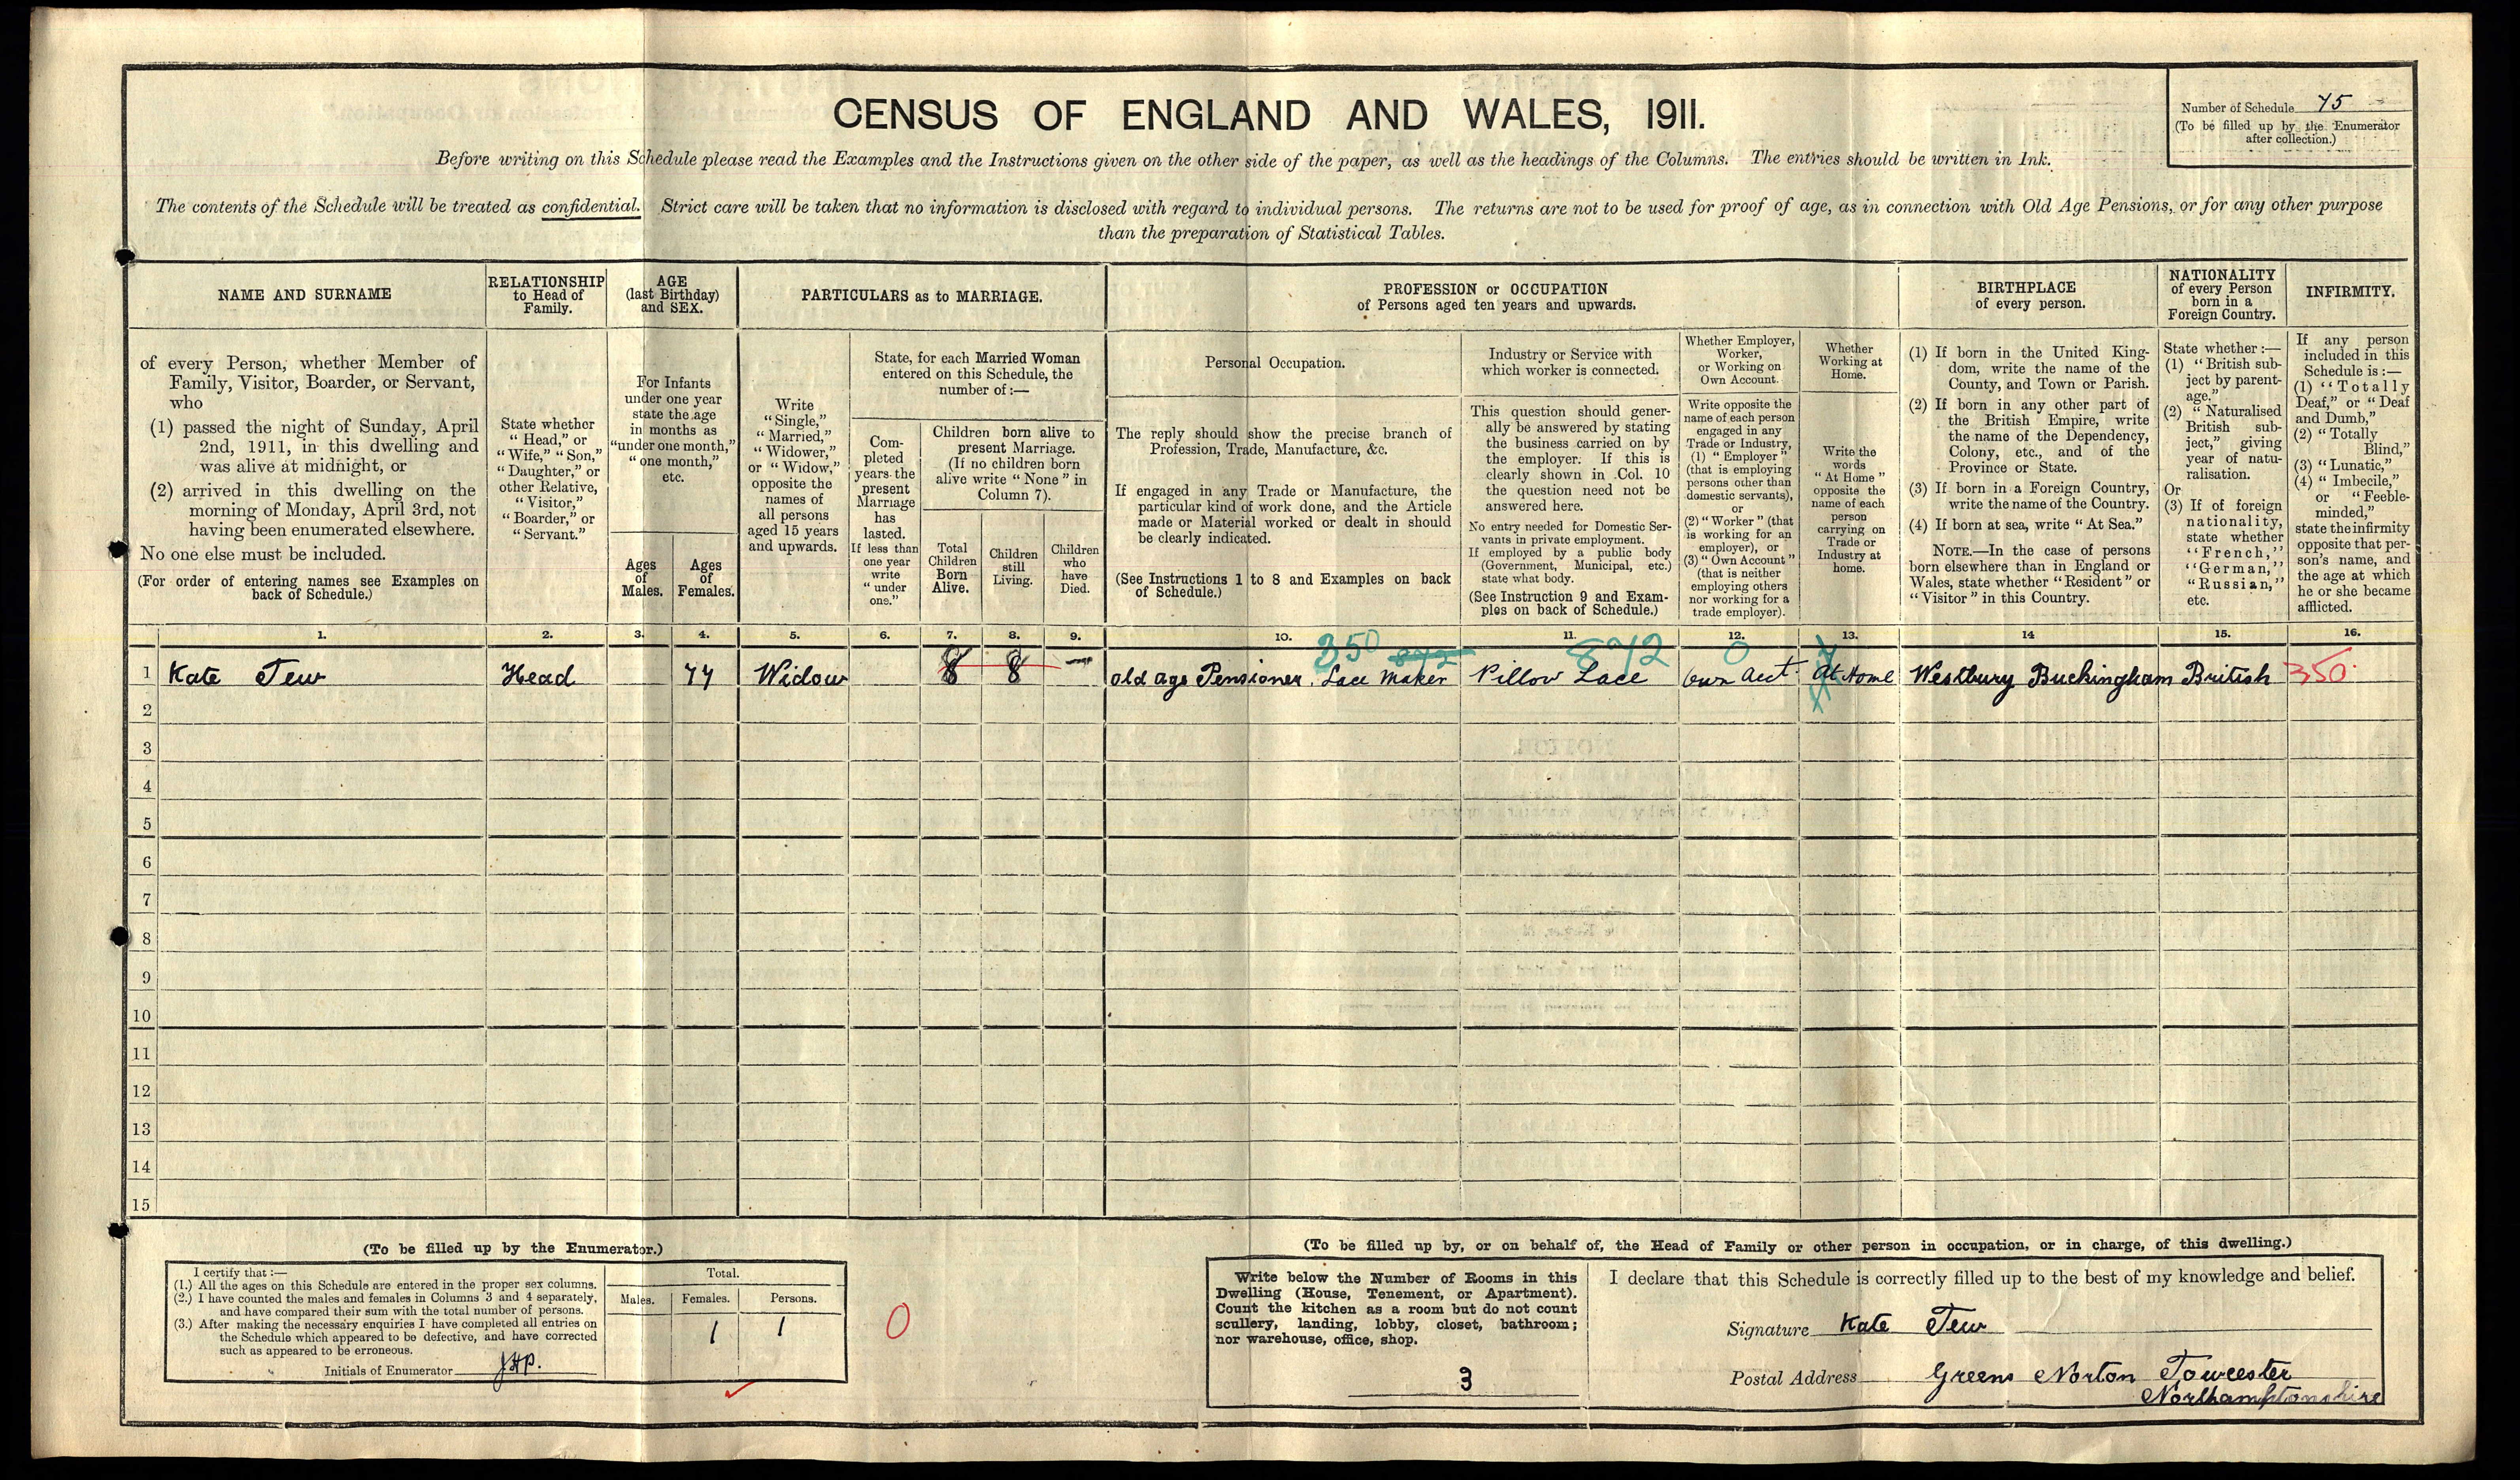 CENSUS OF ENGLAND AND WALES, 1911.
Number of Schedule 75
(To be filled up by the Enumerator
after collection.)
Before writing on this Schedule please read the Examples and the Instructions given on the other side of the paper, as well as the headings of the Columns. The entries should be written in Ink.
The contents of the Schedule will be treated as confidential. Strict care will be taken that no information is disclosed with regard to individual persons. The returns are not to be used for proof of age, as in connection with Old Age Pensions, or for any other purpose
than the preparation of Statistical Tables.
NAME AND SURNAME
of every Person, whether Member of
Family, Visitor, Boarder, or Servant,
who
(1) passed the night of Sunday, April
2nd, 1911, in this dwelling and
was alive at midnight, or
(2) arrived in this dwelling on the
morning of Monday, April 3rd, not
having been enumerated elsewhere.
No one else must be included.
(For order of entering names see Examples on
back of Schedule.)
RELATIONSHIP
to Head of
Family.
State whether
"Head," or
"Wife," "Son,"
"Daughter," or
other Relative,
"Visitor,"
"Boarder," or
"Servant."
AGE
(last Birthday)
and SEX.
For Infants
under one year
state the age
in months as
"under one month,"
"one month,"
etc.
Ages
of
Males.
Ages
of
Females.
PARTICULARS as to MARRIAGE.
Write
"Single,"
"Married,"
"Widower,"
or "Widow,"
opposite the
names of
all persons
aged 15 years
and upwards.
State, for each Married Woman
entered on this Schedule, the
number of:—
Com-
pleted
years the
present
Marriage
has
lasted.
If less than
one year
write
"under
one."
Children born alive to
present Marriage.
(If no children born
alive write "None" in
Column 7).
Total
Children
Born
Alive.
Children
still
Living.
Children
who
have
Died.
PROFESSION or OCCUPATION
of Persons aged ten years and upwards.
Personal Occupation.
The reply should show the precise branch of
Profession, Trade, Manufacture, &c.
If engaged in any Trade or Manufacture, the
particular kind of work done, and the Article
made or Material worked or dealt in should
be clearly indicated.
(See Instructions 1 to 8 and Examples on back
of Schedule.)
Industry or Service with
which worker is connected.
This question should gener-
ally be answered by stating
the business carried on by
the employer. If this is
clearly shown in Col. 10
the question need not be
answered here.
No entry needed for Domestic Ser-
vants in private employment.
If employed by a public body
(Government, Municipal, etc.)
state what body.
(See Instruction 9 and Exam-
ples on back of Schedule.)
Whether Employer,
Worker,
or Working on
Own Account.
Write opposite the
name of each person
engaged in any
Trade or Industry,
(1) "Employer"
(that is employing
persons other than
domestic servants),
or
(2) "Worker" (that
is working for an
employer), or
(3) "Own Account"
(that is neither
employing others
nor working for a
trade employer).
Whether
Working at
Home.
Write the
words
"At Home"
opposite the
name of each
person
carrying on
Trade or
Industry at
home.
BIRTHPLACE
of every person.
(1) If born in the United King-
dom, write the name of the
County, and Town or Parish.
(2) If born in any other part of
the British Empire, write
the name of the Dependency,
Colony, etc., and of the
Province or State.
(3) If born in a Foreign Country,
write the name of the Country.
(4) If born at sea, write "At Sea."
NOTE.—In the case of persons
born elsewhere than in England or
Wales, state whether "Resident" or
"Visitor" in this Country.
NATIONALITY
of every Person
born in a
Foreign Country.
State whether:—
(1) "British sub-
ject by parent-
age,"
(2) "Naturalised
British sub-
ject," giving
year of natu-
ralisation.
Or
(3) If of foreign
nationality,
state whether
"French,"
"German,"
"Russian,"
etc.
INFIRMITY.
If any person
included in this
Schedule is:—
(1) "Totally
Deaf," or "Deaf
and Dumb,"
(2) "Totally
Blind,"
(3) "Lunatic,"
(4) "Imbecile,"
or "Feeble-
minded,"
state the infirmity
opposite that per-
son's name, and
the age at which
he or she became
afflicted.
1. 2. 3. 4. 5. 6. 7. 8. 9. 10. 11. 12. 13. 14 15. 16.
350 872 872 0
1 Kate Tew Head 77 Widow 8 8 — old age Pensioner. Lace Maker Pillow Lace Own Acct. At Home Westbury Buckingham British 350.
2
3
4
5
6
7
8
9
10
11
12
13
14
15
(To be filled up by the Enumerator.)
I certify that:—
(1.) All the ages on this Schedule are entered in the proper sex columns.
(2.) I have counted the males and females in Columns 3 and 4 separately,
and have compared their sum with the total number of persons.
(3.) After making the necessary enquiries I have completed all entries on
the Schedule which appeared to be defective, and have corrected
such as appeared to be erroneous.
Initials of Enumerator JHP.
Total.
Males. Females. Persons.
1 1
0
(To be filled up by, or on behalf of, the Head of Family or other person in occupation, or in charge, of this dwelling.)
Write below the Number of Rooms in this
Dwelling (House, Tenement, or Apartment).
Count the kitchen as a room but do not count
scullery, landing, lobby, closet, bathroom;
nor warehouse, office, shop.
3
I declare that this Schedule is correctly filled up to the best of my knowledge and belief.
Signature Kate Tew
Postal Address Greens Norton Towcester
Northamptonshire